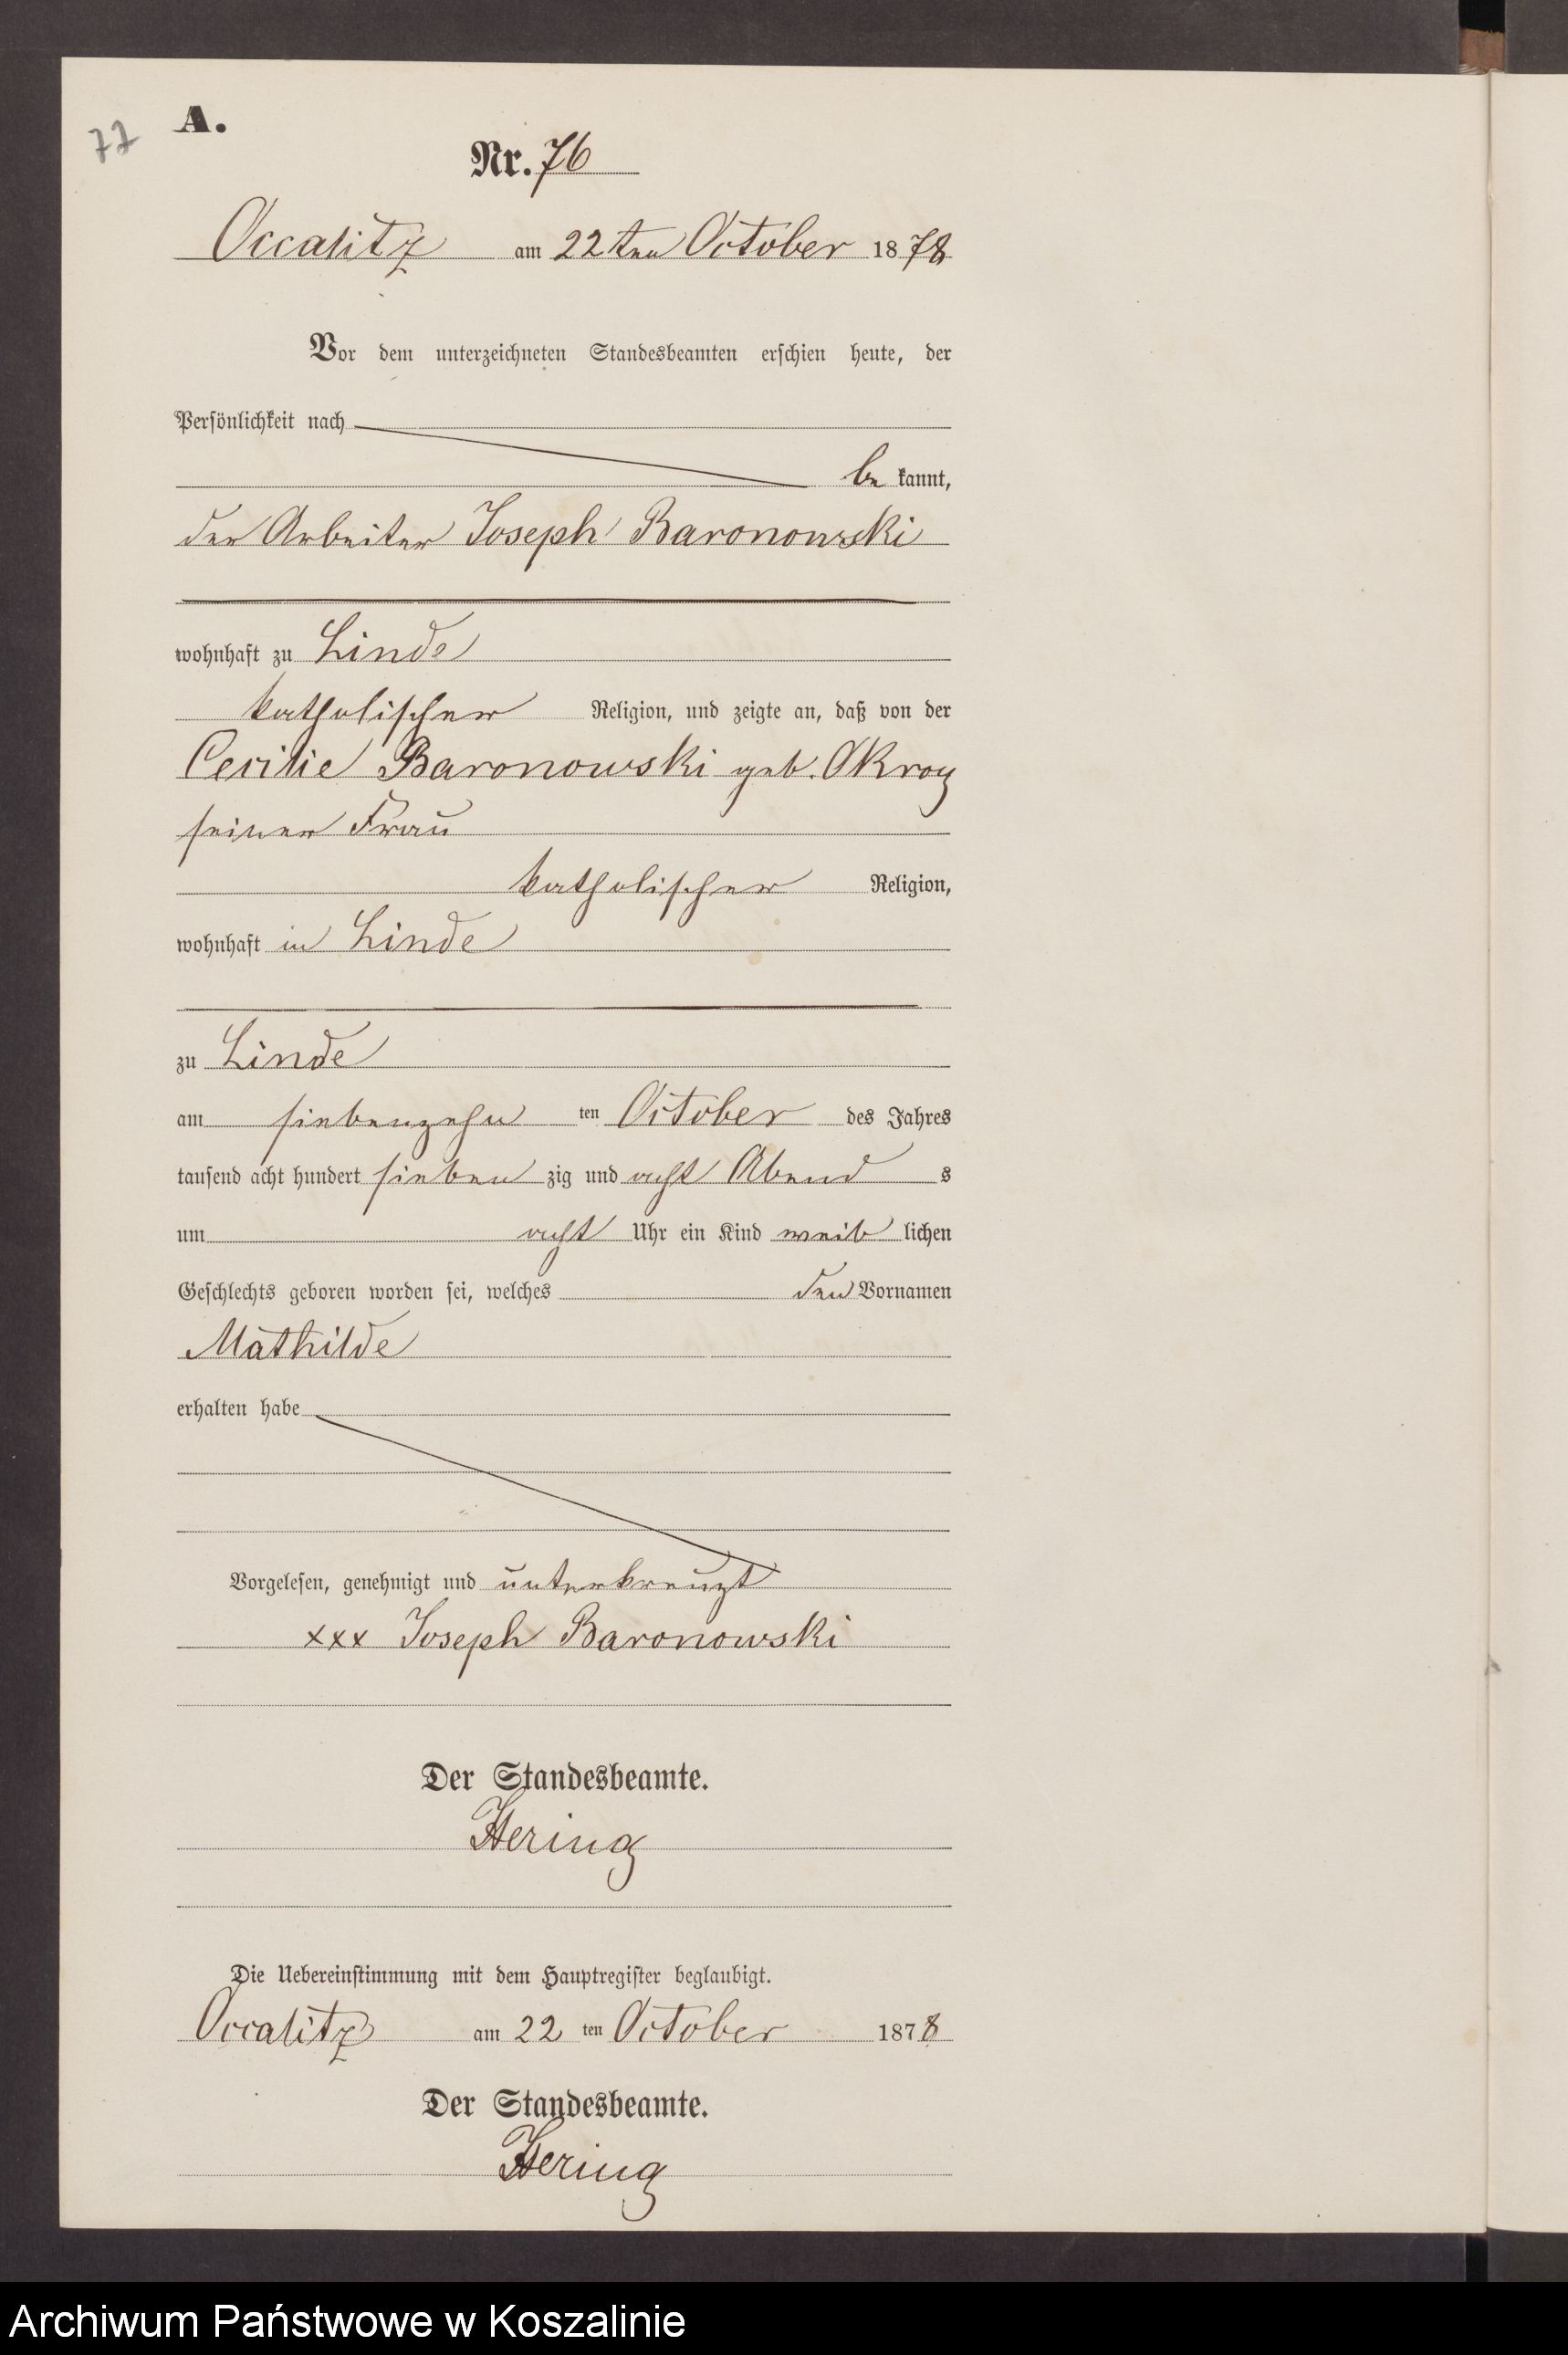 77
A.
Nr. 76
Occalitz am 22ten October 1878
Vor dem unterzeichneten Standesbeamten erschien heute, der
Persönlichkeit nach
be kannt,
der Arbeiter Joseph Baronowski
wohnhaft zu Linde
katholischer Religion, und zeigte an, daß von der
Cecilie Baronowski geb. Okroy
seiner Frau
katholischer Religion,
wohnhaft in Linde
zu Linde
am siebenzehn ten October des Jahres
tausend acht hundert sieben zig und acht Abend s
um acht Uhr ein Kind weib lichen
Geschlechts geboren worden sei, welches den Vornamen
Mathilde
erhalten habe
Vorgelesen, genehmigt und unterkreuzt
xxx Joseph Baronowski
Der Standesbeamte.
Hering
Die Uebereinstimmung mit dem Hauptregister beglaubigt.
Occalitz am 22 ten October 1878
Der Standesbeamte.
Hering
Archiwum Państwowe w Koszalinie